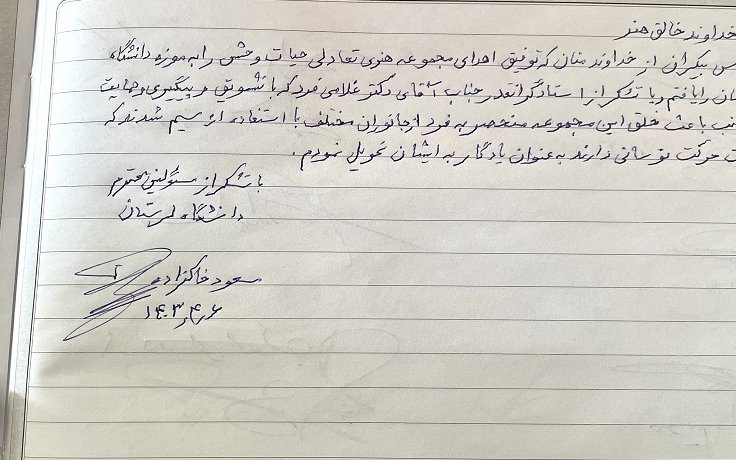 خداوند خالق هنر
س بیکران از خداوند منان که توفیق اهدای مجموعه هنری تعادلی حیات وحش را به موزه دانشگاه
ان را یافتم و با تشکر از استاد گرانقدر جناب آقای دکتر غلامی فرد که با تشویق و پیگیری و حمایت
نب باعث خلق این مجموعه منحصر به فرد از جانوران مختلف با استفاده از سیم شدند که
ت حرکت نوسانی دارند به عنوان یادگار به ایشان تحویل نمودم.
با تشکر از مسئولین محترم
دانشگاه لرستان
مسعود خاکزاده
۱۴۰۳,۴,۶